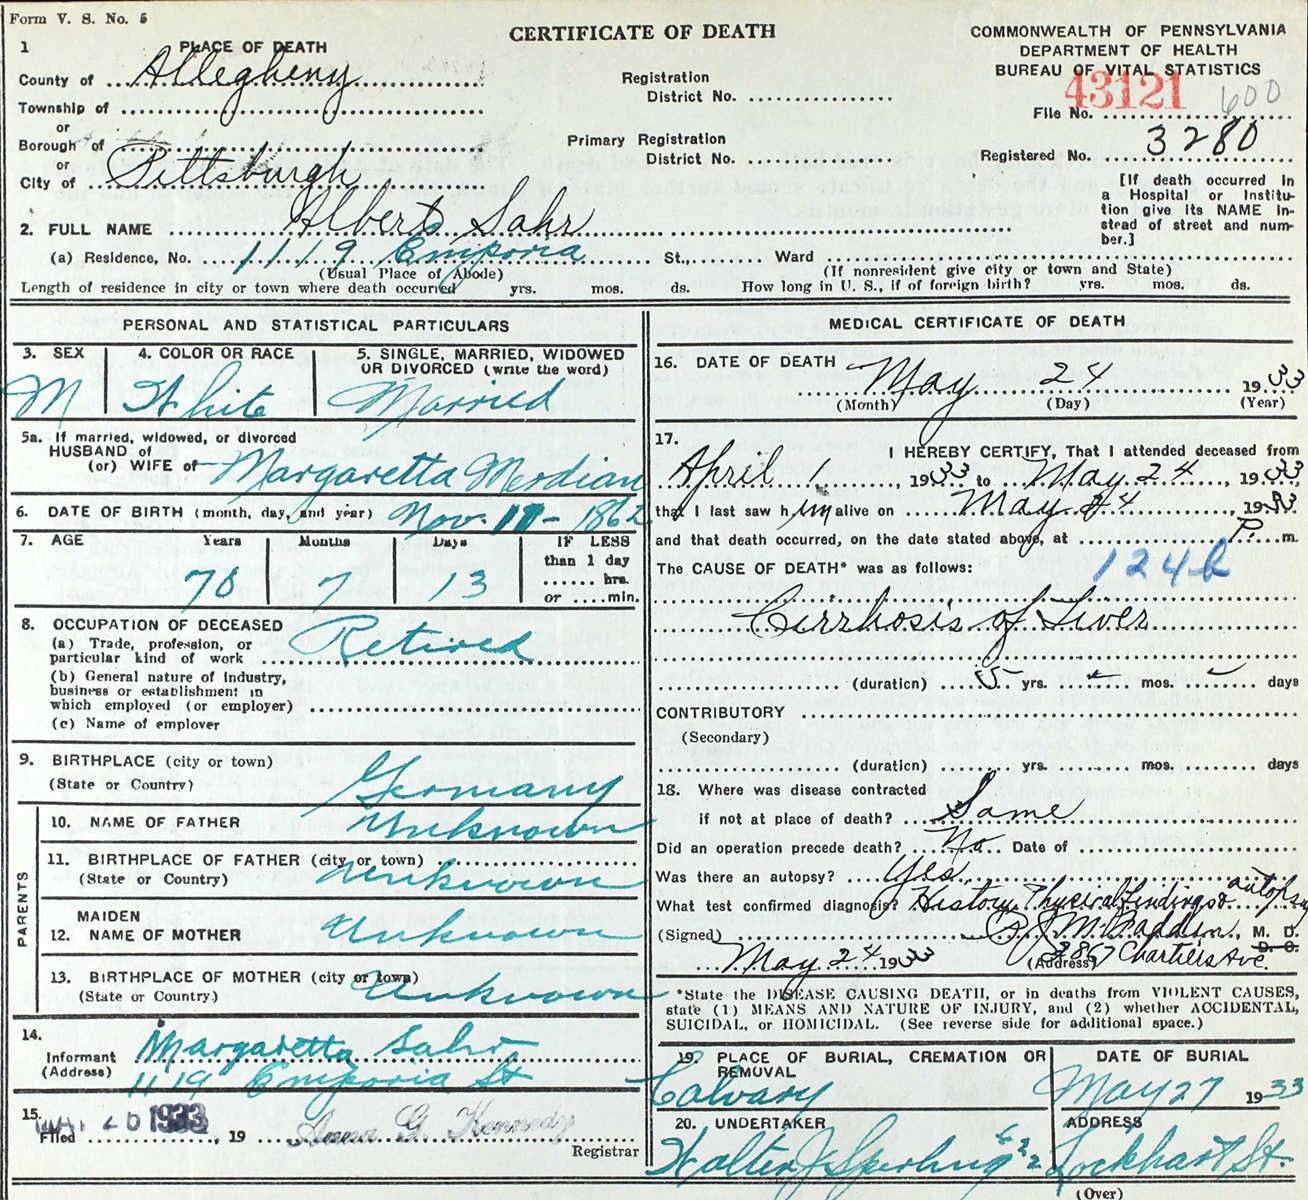 Form V. S. No. 5
CERTIFICATE OF DEATH
COMMONWEALTH OF PENNSYLVANIA
DEPARTMENT OF HEALTH
BUREAU OF VITAL STATISTICS
1 PLACE OF DEATH
County of Allegheny
Township of
or
Borough of
or
City of Pittsburgh
Registration
District No.
Primary Registration
District No.
43121 600
File No.
Registered No. 3280
[If death occurred in
a Hospital or Institu-
tion give its NAME in-
stead of street and num-
ber.]
2. FULL NAME Albert Sahr
(a) Residence, No. 1119 Emporia St., Ward
(Usual Place of Abode) (If nonresident give city or town and State)
Length of residence in city or town where death occurred yrs. mos. ds. How long in U. S., if of foreign birth? yrs. mos. ds.
PERSONAL AND STATISTICAL PARTICULARS
3. SEX 4. COLOR OR RACE 5. SINGLE, MARRIED, WIDOWED
OR DIVORCED (write the word)
M White Married
5a. If married, widowed, or divorced
HUSBAND of
(or) WIFE of Margaretta Merdian
6. DATE OF BIRTH (month, day, and year) Nov. 11 - 1862
7. AGE Years Months Days IF LESS
than 1 day
hrs.
or min.
70 7 13
8. OCCUPATION OF DECEASED
(a) Trade, profession, or
particular kind of work Retired
(b) General nature of industry,
business or establishment in
which employed (or employer)
(c) Name of employer
9. BIRTHPLACE (city or town)
(State or Country) Germany
PARENTS
10. NAME OF FATHER Unknown
11. BIRTHPLACE OF FATHER (city or town)
(State or Country) Unknown
MAIDEN
12. NAME OF MOTHER Unknown
13. BIRTHPLACE OF MOTHER (city or town)
(State or Country) Unknown
14.
Informant Margaretta Sahr
(Address) 1119 Emporia St
15.
Filed 1933, 19 Anna G. Kennedy
Registrar
MEDICAL CERTIFICATE OF DEATH
16. DATE OF DEATH May 24 1933
(Month) (Day) (Year)
17. I HEREBY CERTIFY, That I attended deceased from
April 1, 1933 to May 24, 1933,
that I last saw him alive on May 24, 1933.
and that death occurred, on the date stated above, at P. m.
The CAUSE OF DEATH* was as follows: 124b
Cirrhosis of Liver
(duration) 5 yrs. - mos. - days
CONTRIBUTORY
(Secondary)
(duration) yrs. mos. days
18. Where was disease contracted
if not at place of death? Same
Did an operation precede death? No Date of
Was there an autopsy? Yes
What test confirmed diagnosis? History Physical findings & autopsy
(Signed) M. D.
D. O.
May 24 1933 (Address) 2867 Chartiers Ave.
*State the DISEASE CAUSING DEATH, or in deaths from VIOLENT CAUSES,
state (1) MEANS AND NATURE OF INJURY, and (2) whether ACCIDENTAL,
SUICIDAL, or HOMICIDAL. (See reverse side for additional space.)
19. PLACE OF BURIAL, CREMATION OR
REMOVAL
Calvary
DATE OF BURIAL
May 27 1933
20. UNDERTAKER
Walter J Sperling
ADDRESS
632 Lockhart St.
(Over)